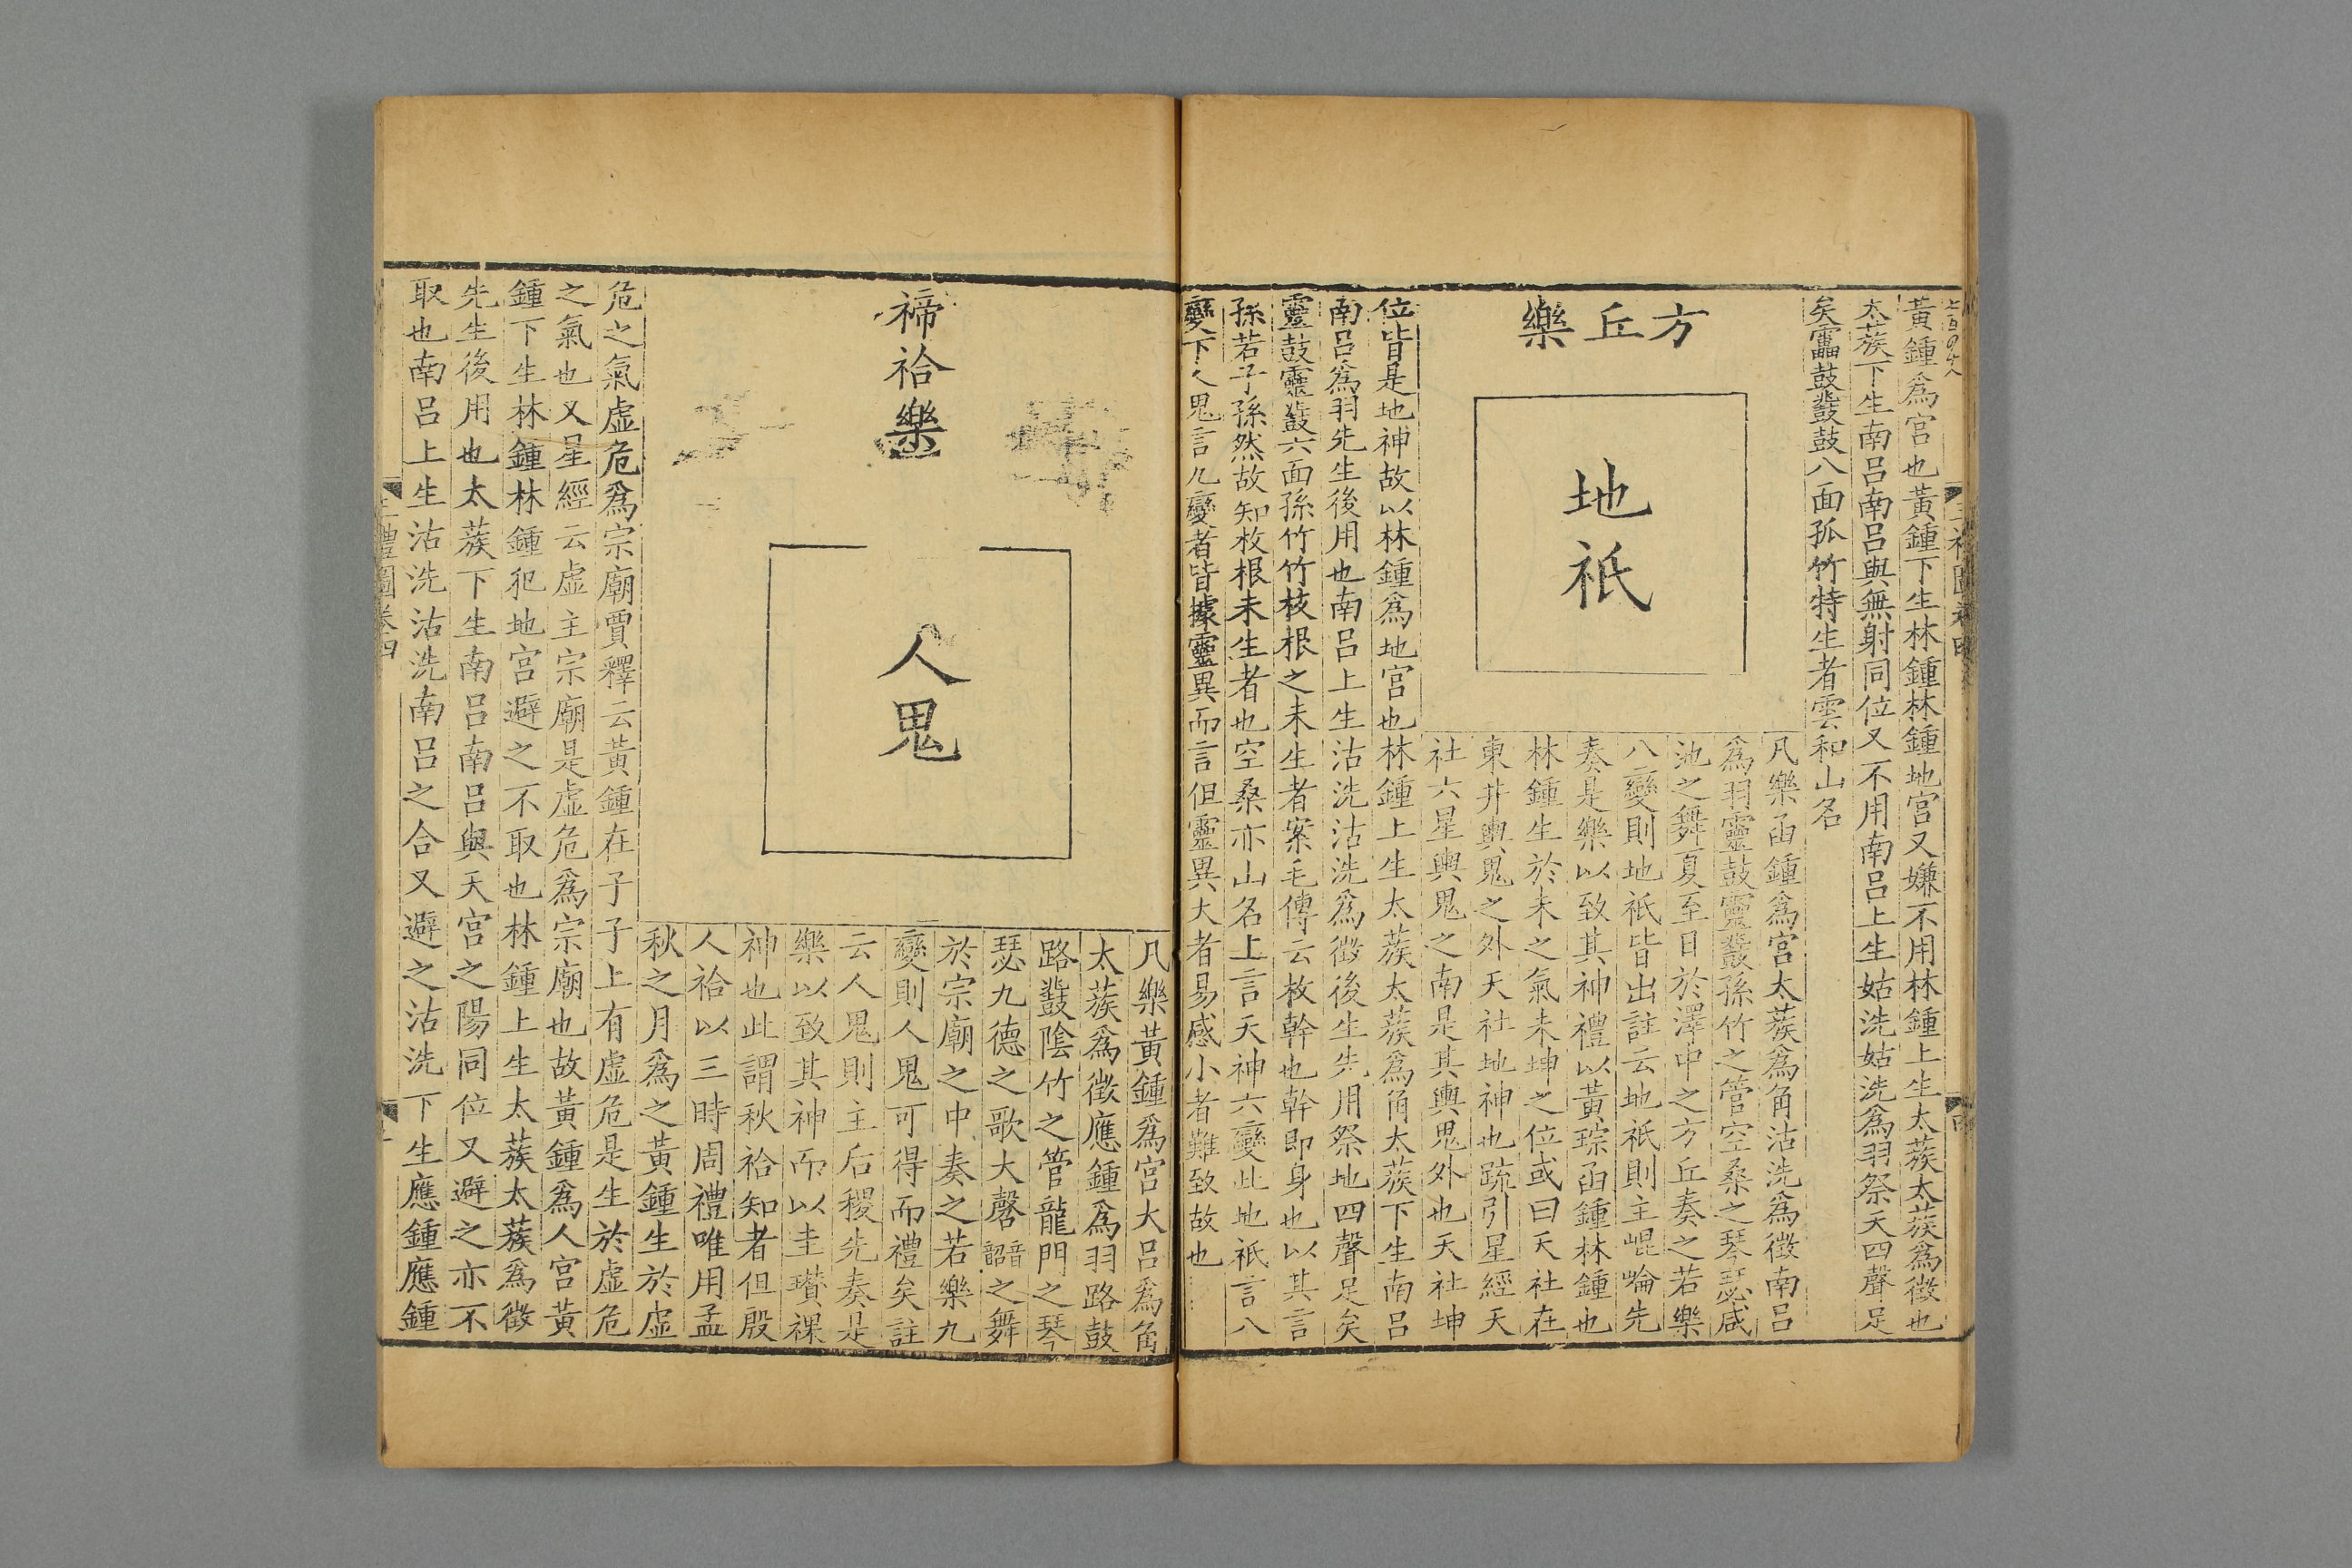 黃鍾爲宫也黃鍾下生林鍾林鍾地宫又嫌不用林鍾上生太蔟太蔟爲徵也
太蔟下生南呂南呂與無射同位又不用南呂上生姑洗姑洗爲羽祭天四聲足
矣靁鼓鼗鼓八面孤竹特生者雲和山名
方丘樂
地祇
凡樂函鍾爲宫太蔟爲角沽洗爲徵南呂
爲羽靈鼓靈鼗孫竹之管空桑之琴瑟咸
池之舞夏至日於澤中之方丘奏之若樂
八變則地祇皆出註云地祇則主崐崘先
奏是樂以致其神禮以黃琮函鍾林鍾也
林鍾生於未之氣未坤之位或曰天社在
東井輿鬼之外天社地神也疏引星經天
社六星輿鬼之南是其輿鬼外也天社坤
位皆是地神故以林鍾爲地宫也林鍾上生太蔟太蔟爲角太蔟下生南呂
南呂爲羽先生後用也南呂上生沽洗沽洗爲徵後生先用祭地四聲足矣
靈鼓靈鼗六面孫竹竹枝根之未生者案毛傳云枚幹也幹即身也以其言
孫若子孫然故知枚根未生者也空桑亦山名上言天神六變此地祇言八
變下人鬼言九變者皆據靈異而言但靈異大者易感小者難致故也
禘祫樂
人鬼
凡樂黃鍾爲宫大呂爲角
太蔟爲徵應鍾爲羽路鼓
路鼗陰竹之管龍門之琴
瑟九德之歌大磬韶音之舞
於宗廟之中奏之若樂九
變則人鬼可得而禮矣註
云人鬼則主后稷先奏是
樂以致其神而以圭瓚祼
神也此謂秋祫知者但殷
人祫以三時周禮唯用孟
秋之月爲之黃鍾生於虛
危之氣虛危爲宗廟賈釋云黃鍾在子子上有虛危是生於虛危
之氣也又星經云虛主宗廟是虛危爲宗廟也故黃鍾爲人宫黃
鍾下生林鍾林鍾犯地宫避之不取也林鍾上生太蔟太蔟爲徵
先生後用也太蔟下生南呂南呂與天宫之陽同位又避之亦不
取也南呂上生沽洗沽洗南呂之合又避之沽洗下生應鍾應鍾
三禮圖卷四